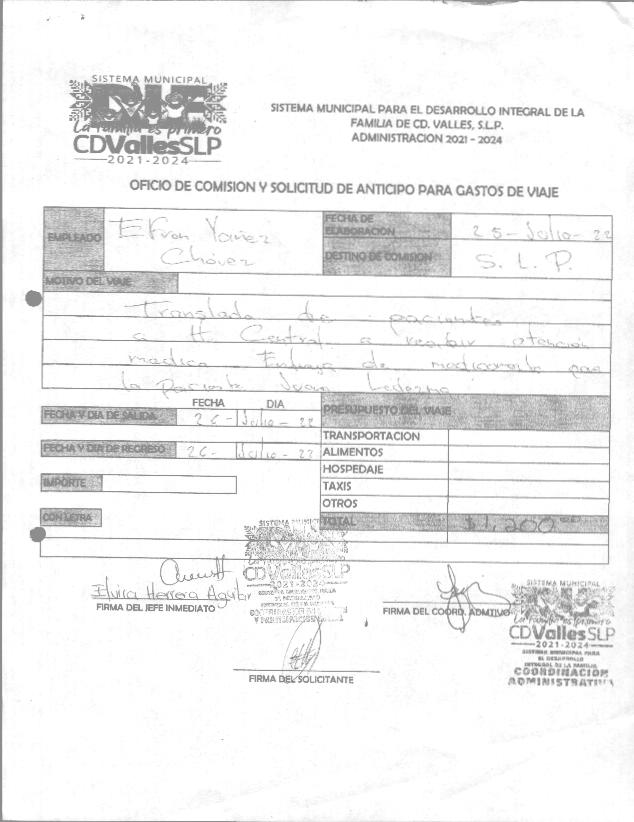 SISTEMA MUNICIPAL
DIF
La familia es primero
CDVallesSLP
2021-2024
SISTEMA MUNICIPAL PARA EL DESARROLLO INTEGRAL DE LA
FAMILIA DE CD. VALLES, S.L.P.
ADMINISTRACION 2021 - 2024
OFICIO DE COMISION Y SOLICITUD DE ANTICIPO PARA GASTOS DE VIAJE
EMPLEADO Efren Yañez Chávez
FECHA DE ELABORACION 25-Julio-22
DESTINO DE COMISION S. L. P.
MOTIVO DEL VIAJE
Translado de pacientes
a H. Central a recibir atención
medica. de medicamento
la paciente Juana Ledezma
FECHA DIA
FECHA Y DIA DE SALIDA 26-Julio-22
FECHA Y DIA DE REGRESO 26-Julio-22
IMPORTE
CON LETRA
PRESUPUESTO DEL VIAJE
TRANSPORTACION
ALIMENTOS
HOSPEDAJE
TAXIS
OTROS
TOTAL $1,200.00
SISTEMA MUNICIPAL
CDVallesSLP
2021-2024
Elvira Herrera Aguilar
FIRMA DEL JEFE INMEDIATO
FIRMA DEL COORD. ADMTIVO
SISTEMA MUNICIPAL
La familia es primero
CDVallesSLP
2021-2024
SISTEMA MUNICIPAL PARA
EL DESARROLLO
INTEGRAL DE LA FAMILIA
COORDINACION
ADMINISTRATIVA
FIRMA DEL SOLICITANTE